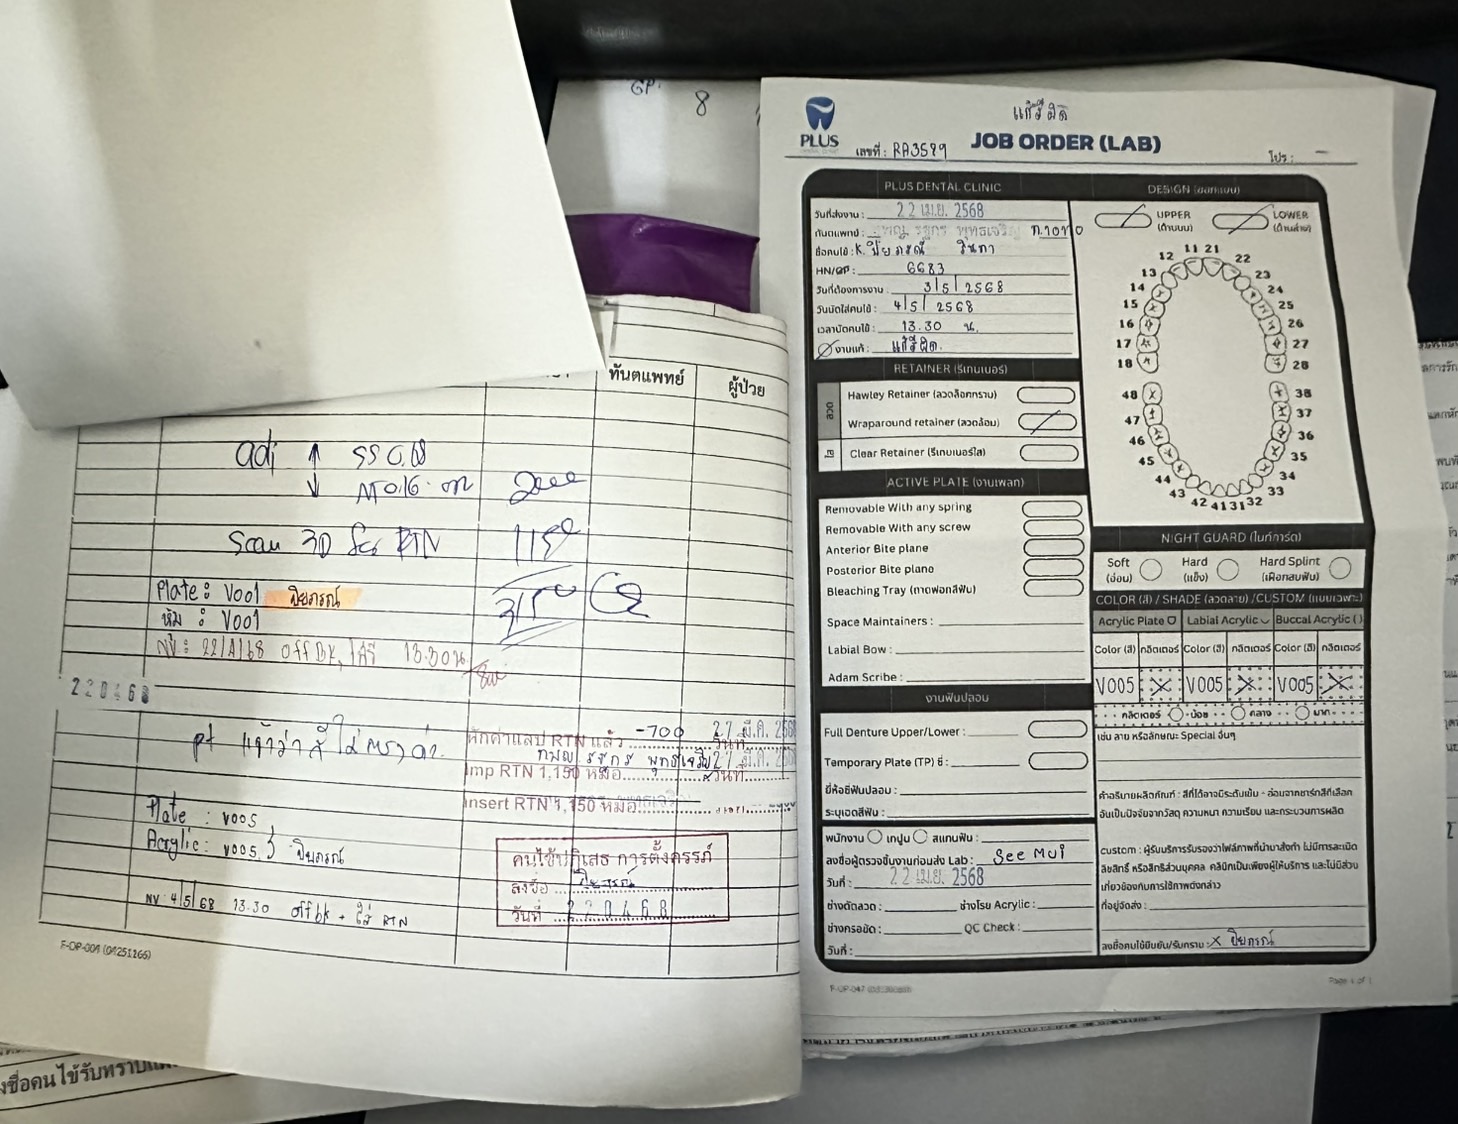 GP. 8
ทันตแพทย์ ผู้ป่วย
adj ↑ SS 0.18
↓
Scan 3D RTN 1150
Plate : V001 ปิยภรณ์
หุ้ม : V001
NV : 22/4/68 off bk, ใส่รี 13.30 น
220468
pt แจ้งว่าสีไม่ตรงค่ะ
หักค่าแสป RTN แล้ว -700 27 มี.ค. 2568
Imp RTN 1,150 หมอ วันที่
Insert RTN 1,150 หมอ
Plate : V005
Acrylic : V005 ปิยภรณ์
คนไข้ปฏิเสธ การตั้งครรภ์
ลงชื่อ ปิยภรณ์
วันที่ 220468
NV 4/5/68 13.30 off bk + ใส่ RTN
F-OP-004 (04251266)
แก้สีผิด
PLUS
เลขที่ : RA3589 JOB ORDER (LAB) โปร : -
PLUS DENTAL CLINIC
วันที่ส่งงาน : 22 เม.ย. 2568
ทันตแพทย์ :
ชื่อคนไข้ : K. ปิยภรณ์
HN/GP : 6683
วันที่ต้องการงาน : 3/5/2568
วันนัดใส่คนไข้ : 4/5/2568
เวลานัดคนไข้ : 13.30 น.
งานแก้ : แก้สีผิด
RETAINER (รีเทนเนอร์)
ลวด
Hawley Retainer (ลวดล็อคกราม)
Wraparound retainer (ลวดล้อม)
ใส
Clear Retainer (รีเทนเนอร์ใส)
ACTIVE PLATE (งานเพลท)
Removable With any spring
Removable With any screw
Anterior Bite plane
Posterior Bite plane
Bleaching Tray (ถาดฟอกสีฟัน)
Space Maintainers :
Labial Bow :
Adam Scribe :
งานฟันปลอม
Full Denture Upper/Lower :
Temporary Plate (TP) ซี่ :
ยี่ห้อซี่ฟันปลอม :
ระบุเฉดสีฟัน :
พนักงาน เทปูน สแกนฟัน :
ลงชื่อผู้ตรวจชิ้นงานก่อนส่ง Lab : See Mui
วันที่ : 22 เม.ย. 2568
ช่างดัดลวด : ช่างโรย Acrylic :
ช่างกรอขัด : QC Check :
วันที่ :
DESIGN (ออกแบบ)
UPPER (ด้านบน) LOWER (ด้านล่าง)
11 21
12 22
13 23
14 24
15 25
16 26
17 27
18 28
48 38
47 37
46 36
45 35
44 34
43 33
42 41 31 32
NIGHT GUARD (ไนท์การ์ด)
Soft (อ่อน) Hard (แข็ง) Hard Splint (เฝือกสบฟัน)
COLOR (สี) / SHADE (ลวดลาย) /CUSTOM (แบบเฉพาะ)
Acrylic Plate Labial Acrylic Buccal Acrylic ( )
Color (สี) กลิตเตอร์ Color (สี) กลิตเตอร์ Color (สี) กลิตเตอร์
V005 V005 V005
กลิตเตอร์ น้อย กลาง มาก
เช่น ลาย หรือลักษณะ Special อื่นๆ
คำอธิบายผลิตภัณฑ์ : สีที่ได้อาจมีระดับเข้ม - อ่อนจากชาร์ทสีที่เลือก
อันเป็นปัจจัยจากวัสดุ ความหนา ความเรียบ และกระบวนการผลิต
custom : ผู้รับบริการรับรองว่าไฟล์ภาพที่นำมาสั่งทำ ไม่มีการละเมิด
ลิขสิทธิ์ หรือสิทธิส่วนบุคคล คลินิกเป็นเพียงผู้ให้บริการ และไม่มีส่วน
เกี่ยวข้องกับการใช้ภาพดังกล่าว
ที่อยู่จัดส่ง :
ลงชื่อคนไข้ยืนยัน/รับทราบ : X ปิยภรณ์